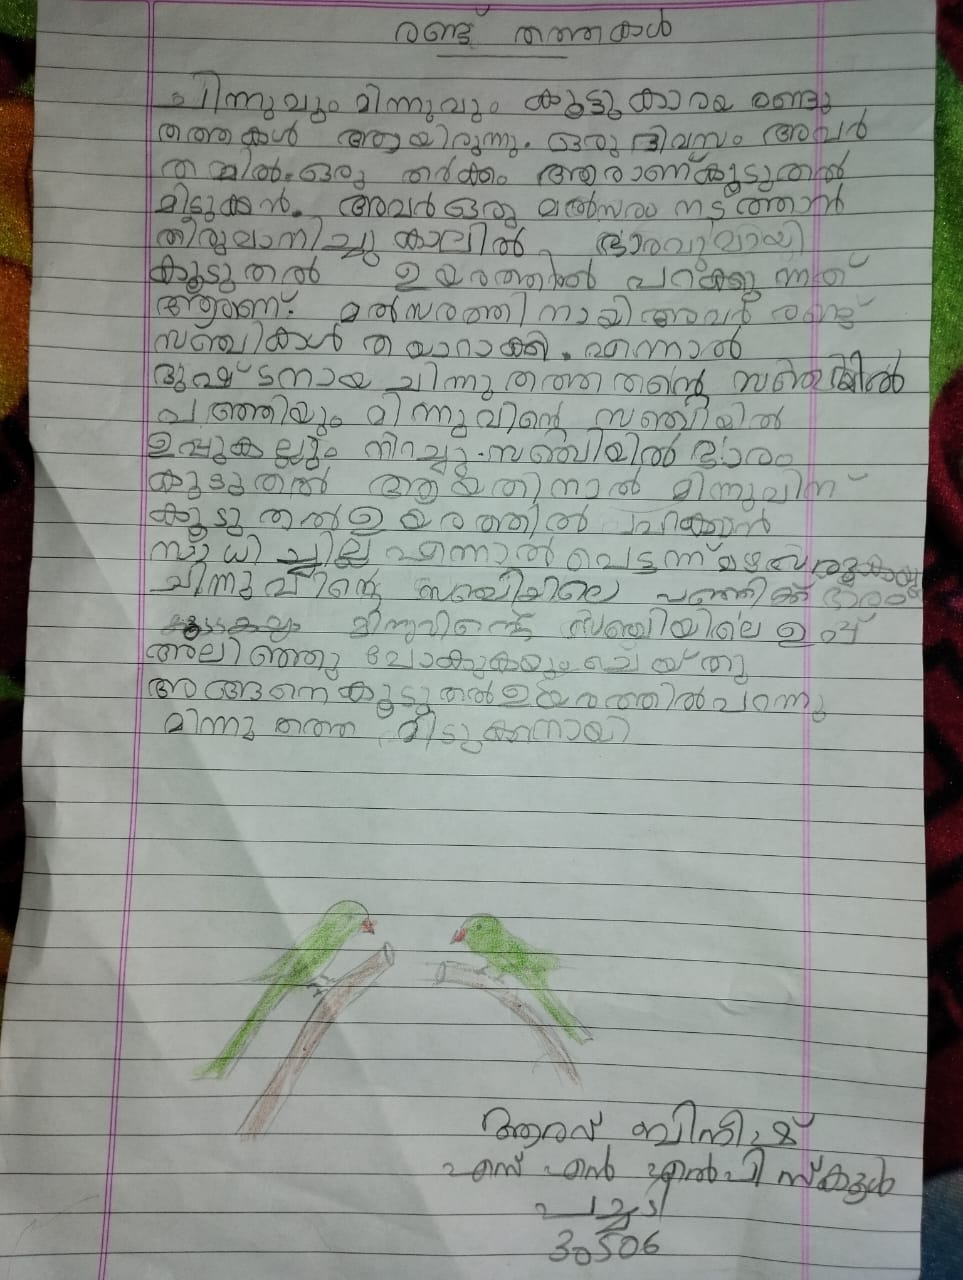 രണ്ട് തത്തകൾ
ചിന്നുവും മിന്നുവും കൂട്ടുകാരായ രണ്ടു
തത്തകൾ ആയിരുന്നു. ഒരു ദിവസം അവർ
തമ്മിൽ ഒരു തർക്കം ആരാണ് കൂടുതൽ
മിടുക്കൻ. അവർ ഒരു മൽസരം നടത്താൻ
തീരുമാനിച്ചു കാലിൽ ഭാരവുമായി
കൂടുതൽ ഉയരത്തിൽ പറക്കുന്നത്
ആരാണ്. മൽസരത്തിനായി അവർ രണ്ട്
സഞ്ചികൾ തയാറാക്കി. എന്നാൽ
ദുഷ്ടനായ ചിന്നു തത്ത തന്റെ സഞ്ചിയിൽ
പഞ്ഞിയും മിന്നുവിന്റെ സഞ്ചിയിൽ
ഉപ്പുകല്ലും നിറച്ചു. സഞ്ചിയിൽ ഭാരം
കൂടുതൽ ആയതിനാൽ മിന്നുവിന്
കൂടുതൽ ഉയരത്തിൽ പറക്കാൻ
സാധിച്ചില്ല എന്നാൽ പെട്ടന്ന് മഴ
ചിന്നുവിന്റെ സഞ്ചിയിലെ പഞ്ഞിക്ക് ഭാരം
മിന്നുവിന്റെ സഞ്ചിയിലെ ഉപ്പ്
അലിഞ്ഞു പോകുകയും ചെയ്തു
അങ്ങനെ കൂടുതൽ ഉയരത്തിൽ പറന്നു
മിന്നു തത്ത മിടുക്കനായി
ആരവ്
എസ് എൻ എൽ പി സ്കൂൾ
30506